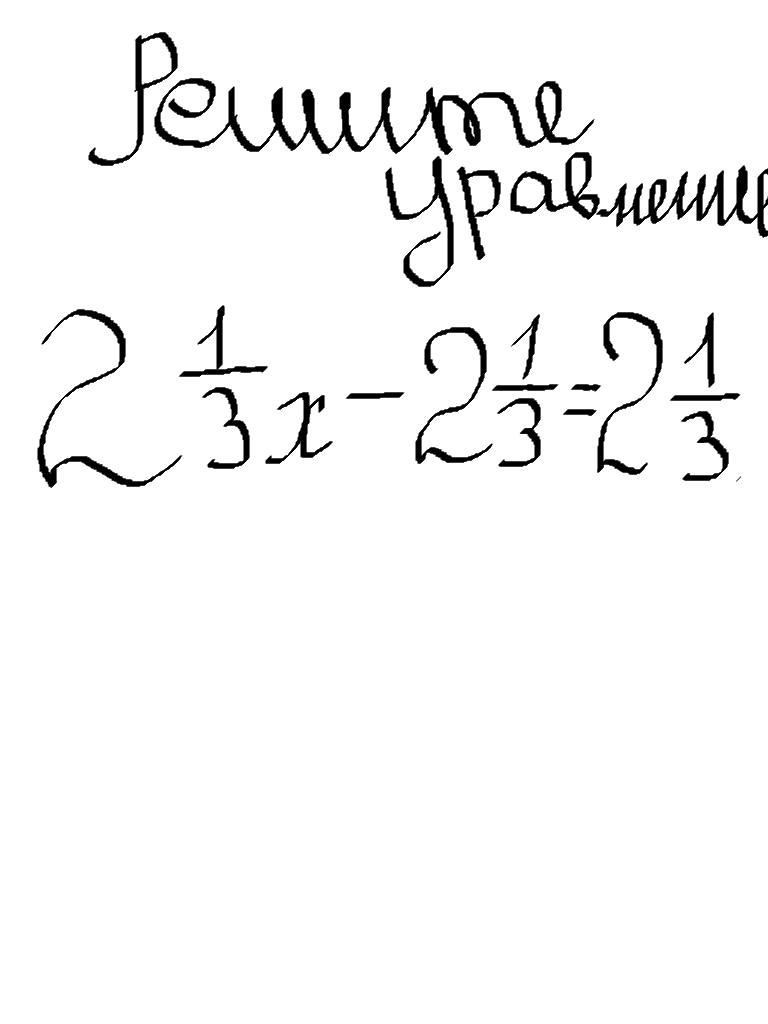 Решите
уравнение
2 1/3 x - 2 1/3 = 2 1/3